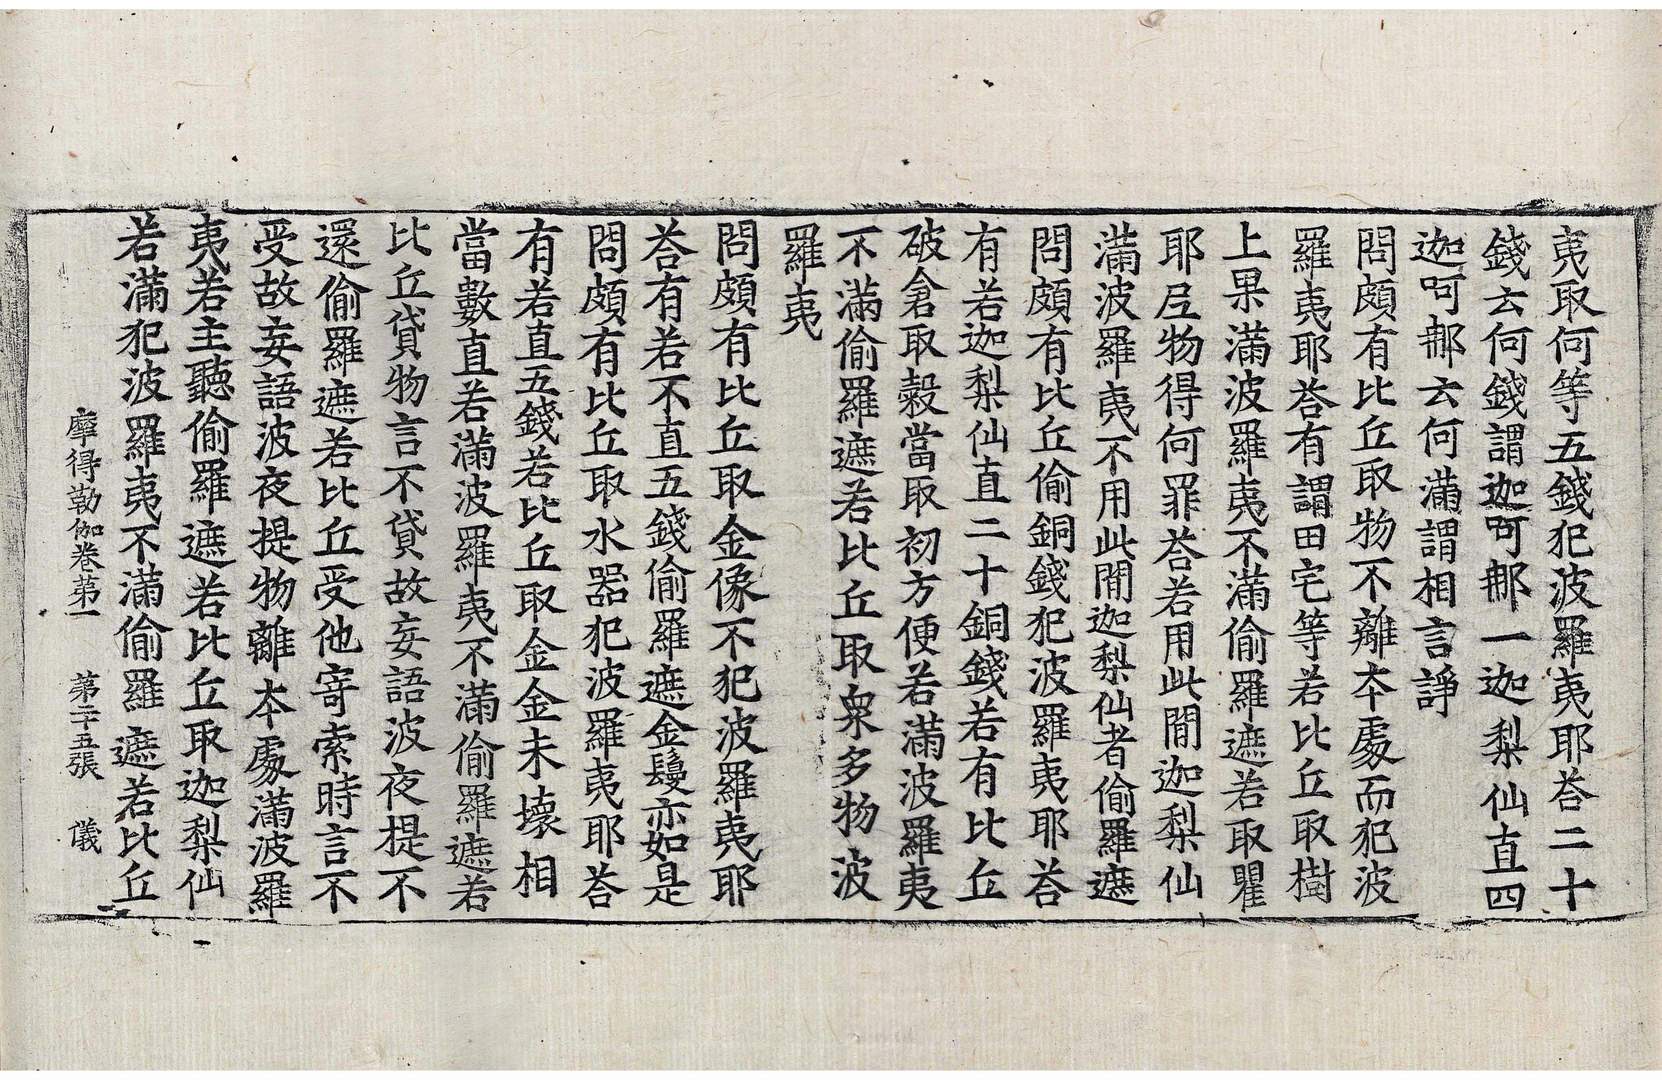 夷取何等五錢犯波羅夷耶荅二十
錢云何錢謂迦呵那一迦梨仙直四
迦呵那云何滿謂相言諍
問頗有比丘取物不離本處而犯波
羅夷耶荅有謂田宅等若比丘取樹
上果滿波羅夷不滿偷羅遮若取瞿
耶尼物得何罪荅若用此閒迦梨仙
滿波羅夷不用此閒迦梨仙者偷羅遮
問頗有比丘偷銅錢犯波羅夷耶荅
有若迦梨仙直二十銅錢若有比丘
破倉取穀當取初方便若滿波羅夷
不滿偷羅遮若比丘取衆多物波
羅夷
問頗有比丘取金像不犯波羅夷耶
荅有若不直五錢偷羅遮金鬘亦如是
問頗有比丘取水器犯波羅夷耶荅
有若直五錢若比丘取金金未壞相
當數直若滿波羅夷不滿偷羅遮若
比丘貸物言不貸故妄語波夜提不
還偷羅遮若比丘受他寄索時言不
受故妄語波夜提物離本處滿波羅
夷若主聽偷羅遮若比丘取迦梨仙
若滿犯波羅夷不滿偷羅遮若比丘
摩得勒伽卷第一 第二十五張 儀